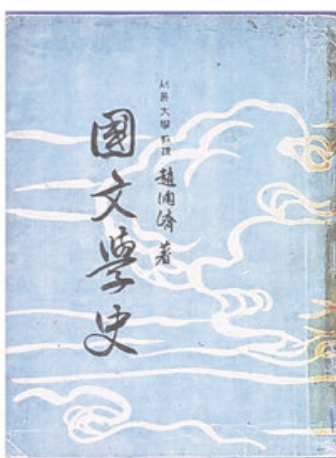 서울大學敎授 趙潤濟 著
國文學史